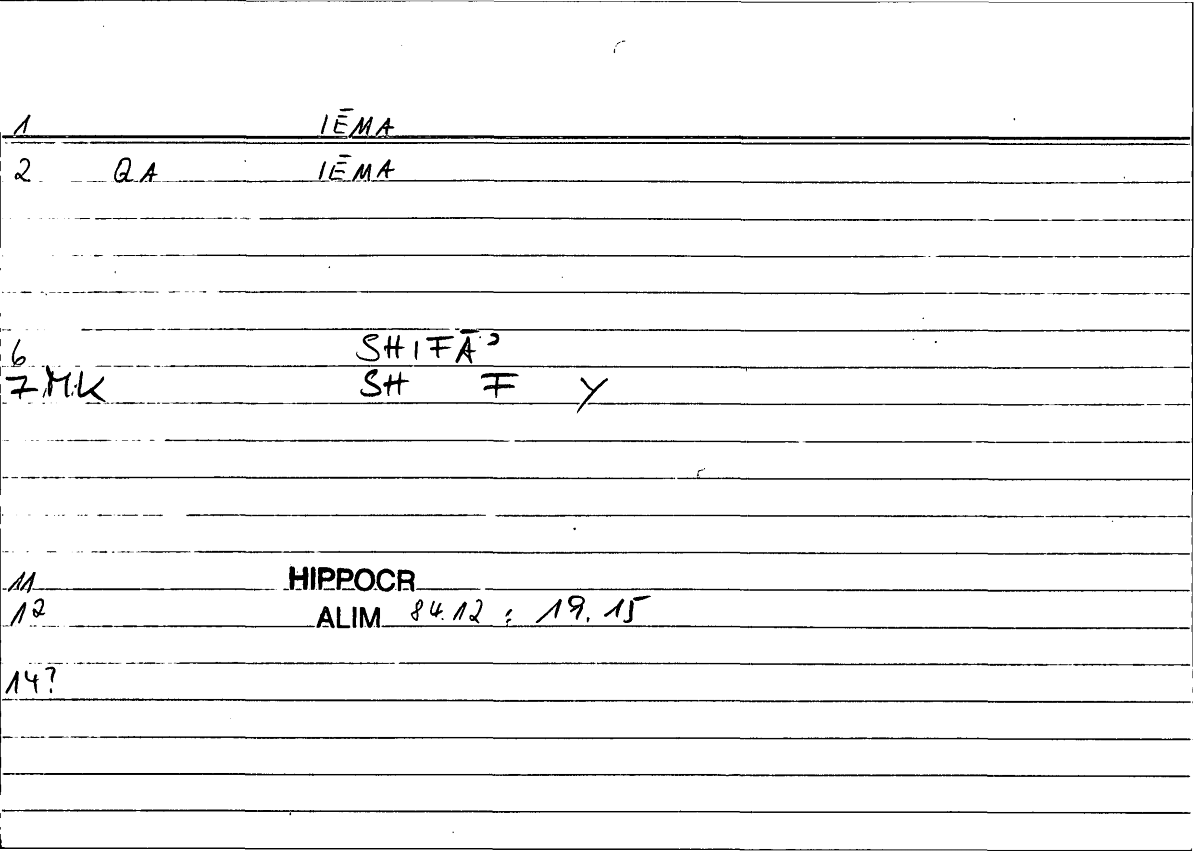 1 IĒMA
2 QA IĒMA
6 SHIFĀʾ
7 MK SH F Y
11 HIPPOCR
12 ALIM 84.12 : 19.15
14?